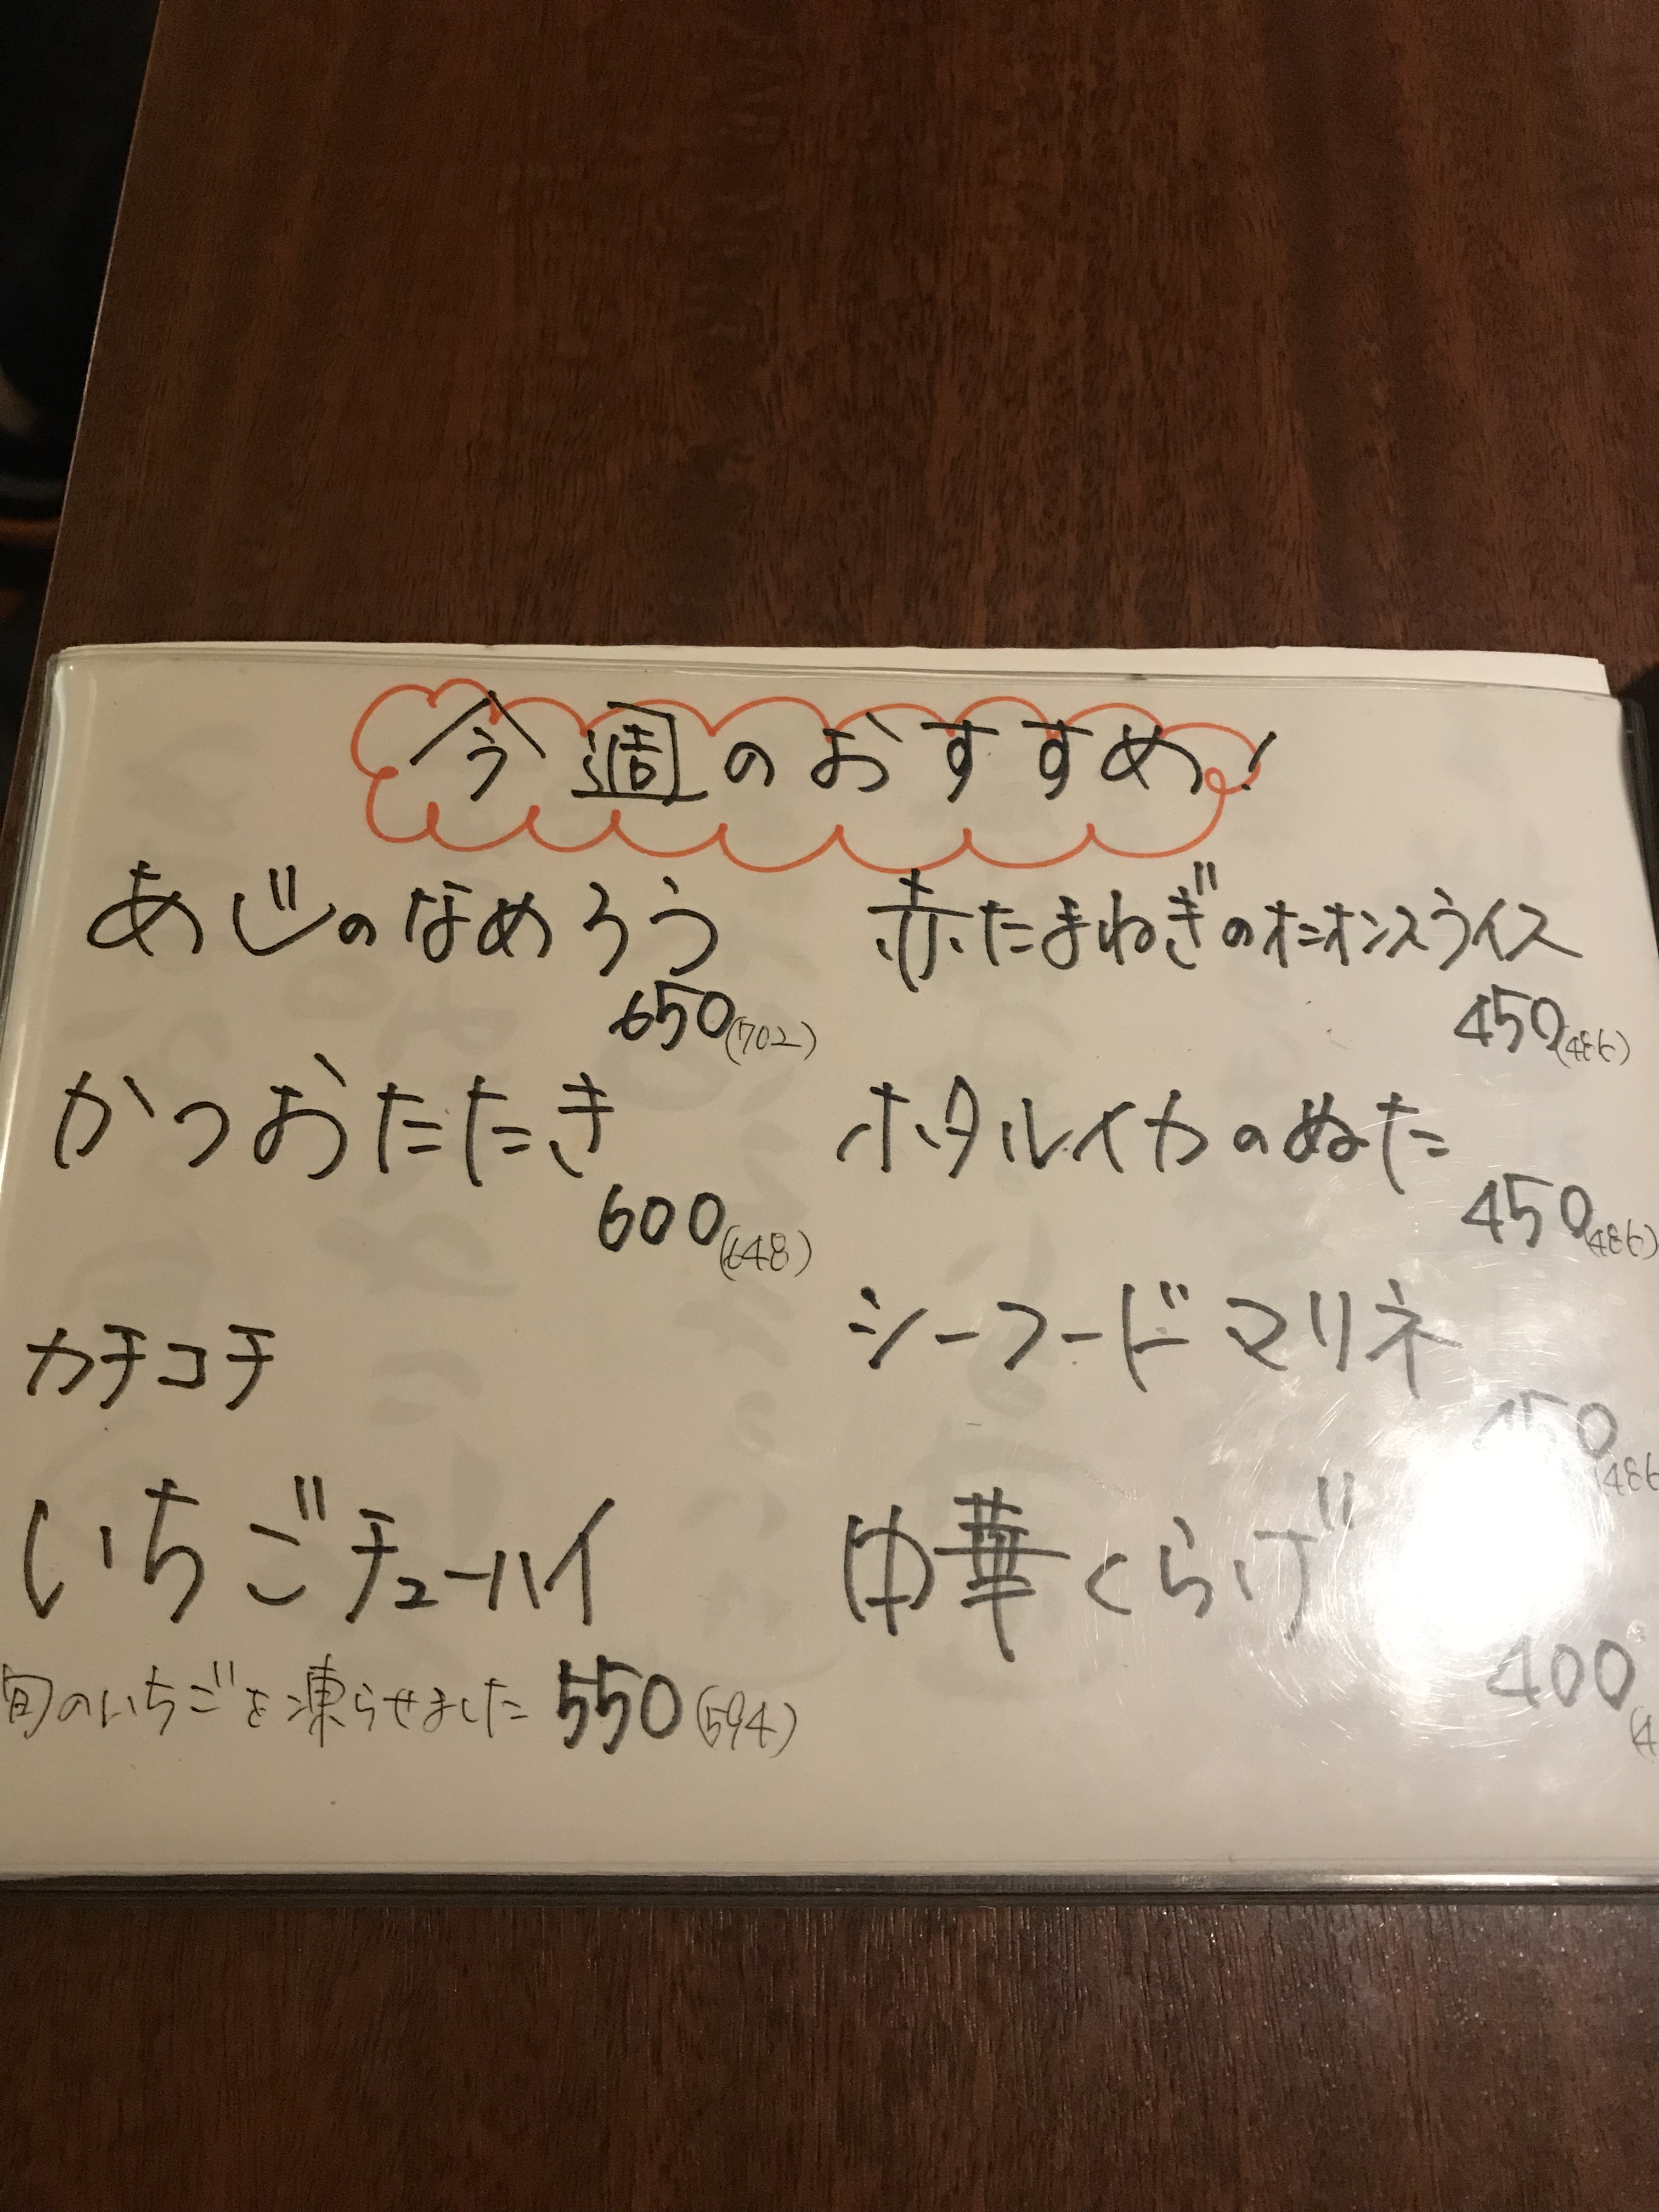 今週のおすすめ!
あじのなめろう
650(702)
かつおたたき
600(648)
カチコチ
いちごチューハイ
旬のいちごを凍らせました 550(594)
赤たまねぎのオニオンスライス
450(486)
ホタルイカのぬた
450(486)
シーフードマリネ
450(486
中華くらげ
400(4